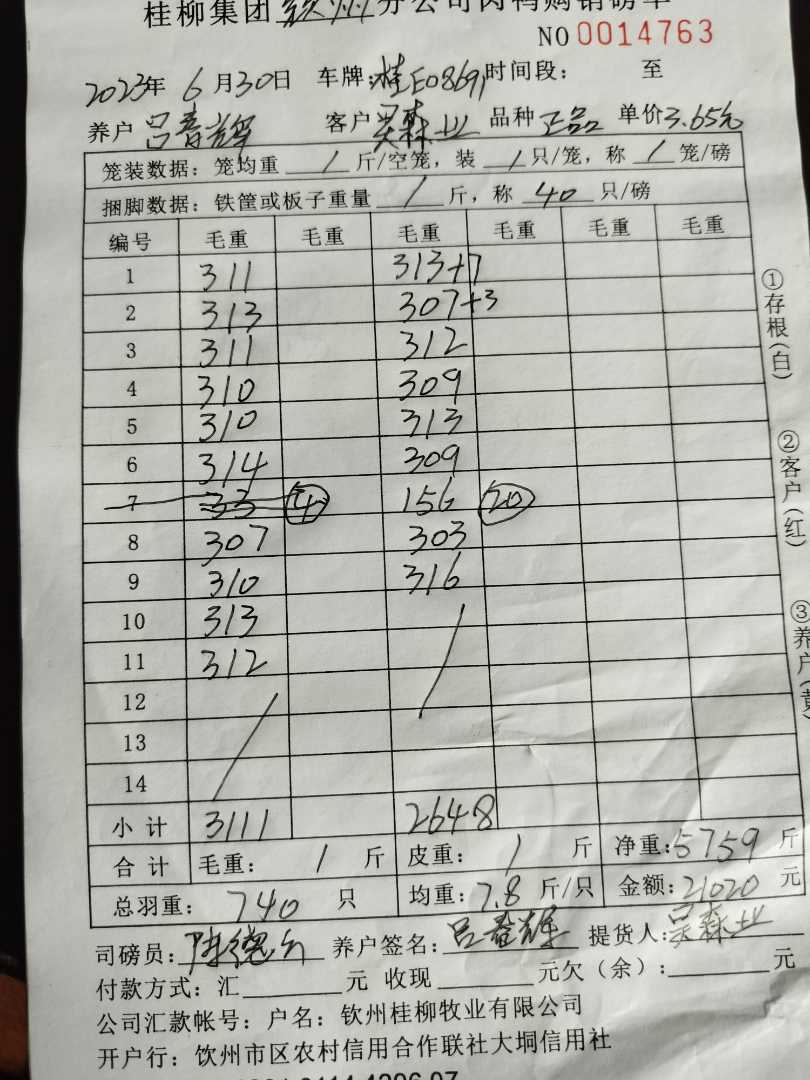 桂柳集团钦州分公司肉鸭购销磅单
NO 0014763
2023年 6月30日 车牌:桂E08691 时间段: 至
养户 吕春辉 客户 吴森业 品种 正品 单价3.65元
笼装数据: 笼均重 / 斤/空笼, 装 / 只/笼, 称 / 笼/磅
捆脚数据: 铁筐或板子重量 / 斤, 称 40 只/磅
编号 毛重 毛重 毛重 毛重 毛重 毛重
1 311 313+7
2 313 307+3
3 311 312
4 310 309
5 310 313
6 314 309
7 33 4 156 20
8 307 303
9 310 316
10 313
11 312
12
13
14
小计 3111 2648
合计 毛重: / 斤 皮重: / 斤 净重:5759 斤
总羽重: 740 只 均重:7.8 斤/只 金额:21020 元
司磅员: 养户签名: 吕春辉 提货人:吴森业
付款方式: 汇 元 收现 元欠(余): 元
公司汇款帐号: 户名: 钦州桂柳牧业有限公司
开户行: 饮州市区农村信用合作联社大垌信用社
①存根(白)
②客户(红)
③养户(黄)